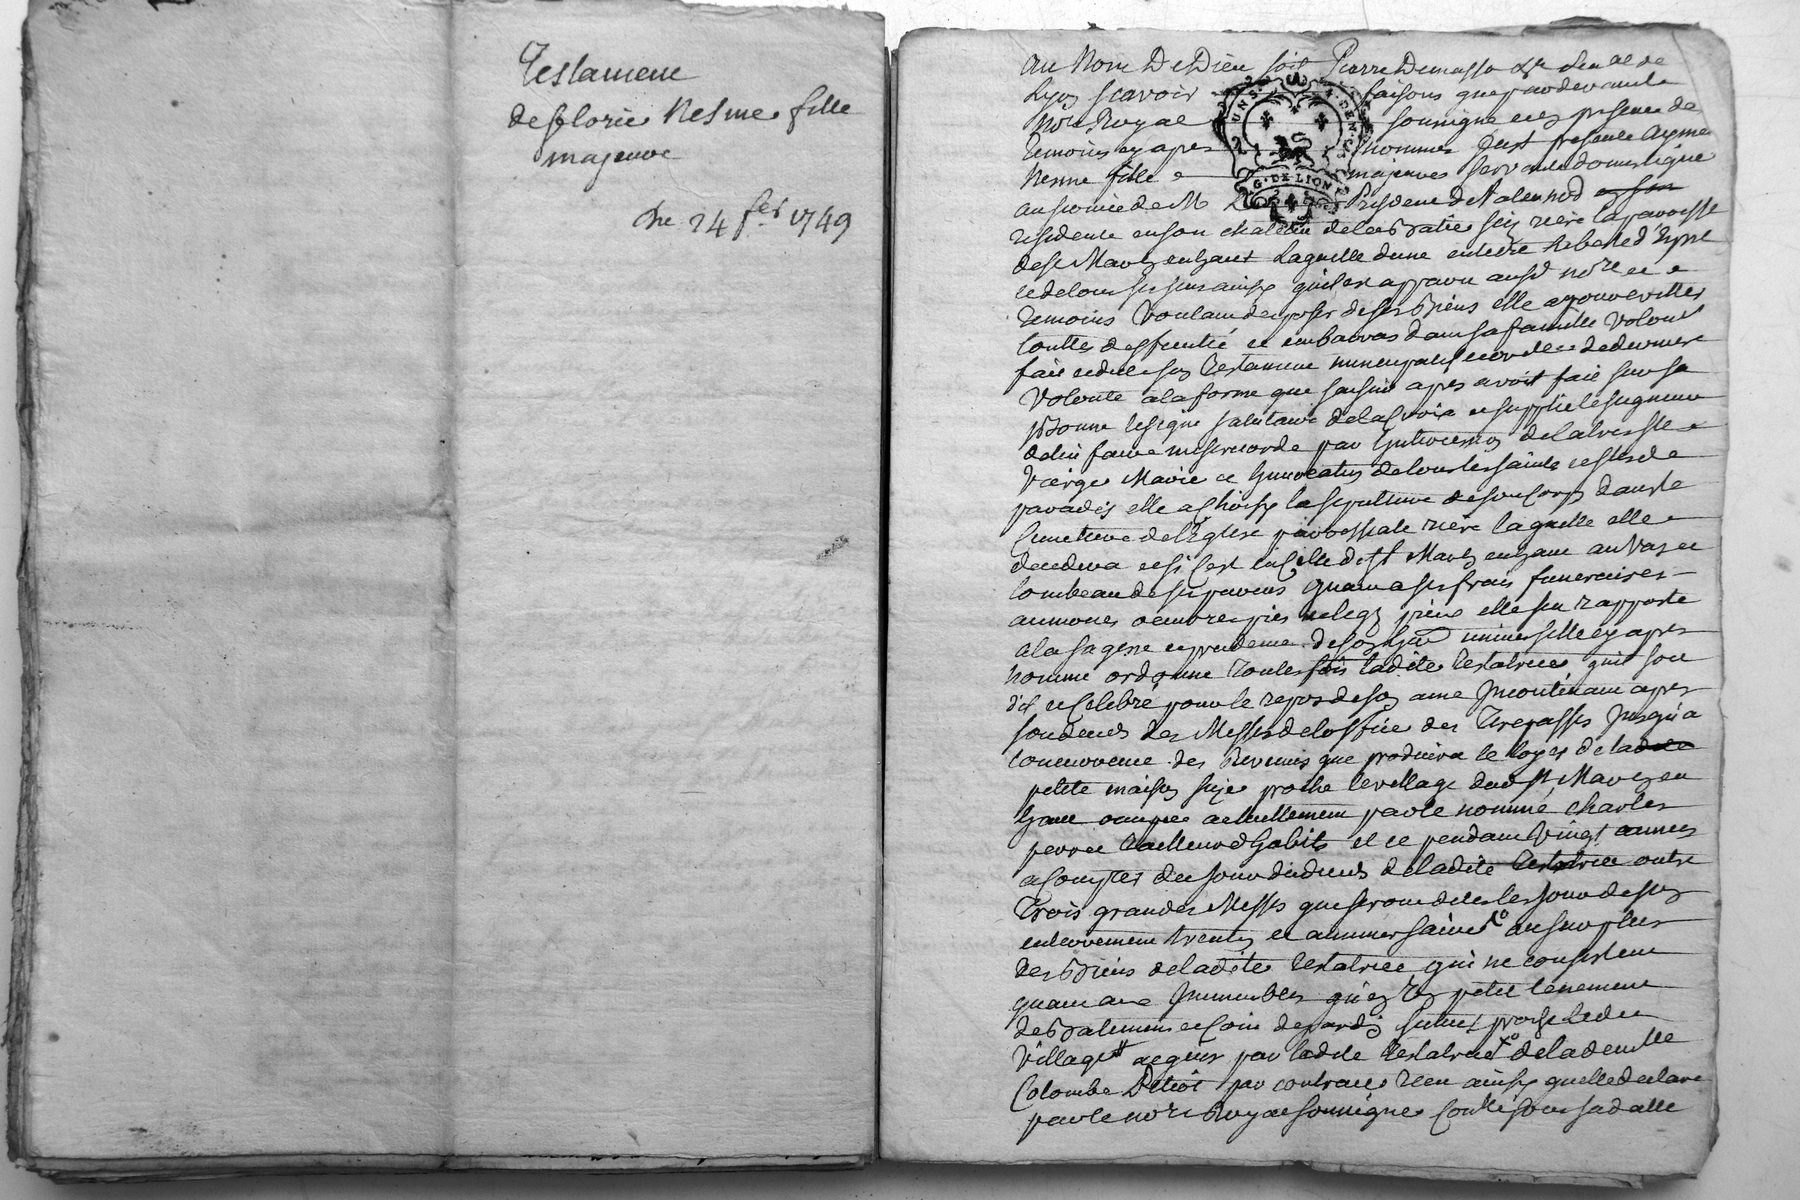 Testament
de florie Nesme fille
majeure
Du 24 fer 1749
Au Nom De Dieu soit Pierre Demasso
Lyon scavoir faisons que pardevant le
Nore Royal soussigne et en presence des
temoins cy apres nommes fust presente Ayme
Nesme fille majeure servante domestique
au service de M President de Valernod en son
residente en son chateau de la Bâtie sis riere la paroisse
de St Martin en haut laquelle dune entiere liberté d'esprit
et de tous ses sens ainsy quil est apparu ausd nore et
temoins voulant disposer de ses Biens et
touttes difficultés et embarras dans sa famille volont
fait et dicté son testament nuncupatif et ordre de derniere
Volonté a la forme que sensuit apres avoir fait sur sa
personne le signe salutaire de la Croix et supplié le seigneur
de luy faire misericorde par l'intercession de la tres Ste
Vierge Marie et Invocation de tous les saints et stes de
paradis elle a choisy la sepulture de son corps dans le
Cimetiere de l'Eglise parroissiale riere laquelle elle
decedera et si cest en celle de St Martin en haut au vas et
tombeau de ses parens quant a ses frais funeraires
aumones oeuvres pies et legs pieux elle sen rapporte
a la sagesse et prudence de son her universelle cy apres
nommé ordonne toutes fois ladite testatrice quil soit
dit et celebré pour le repos de son ame Incontinant apres
son deces des Messes de l'office des Trepassés jusqu'a
concurrence des Revenus que produira le loyer de la dite
petite maison sise proche le village dud St Martin en
haut occupée actuellement par le nommé Charles
perret tailleur d'habits et ce pendant vingt années
a compter du jour du deces de ladite testatrice outre
Trois grandes Messes que seront dites les jours de son
enterrement trentin et anniversaire au surplus
les Biens de ladite testatrice qui ne consistent
quant aux Immeubles qu'en un petit tenement
de Batiment et coin de jardin situés proche ledit
Village acquis par ladite testatrice de la demlle
Colombe par contract receu ainsy quelle declare
par le nore Royal soussigné soub sa datte